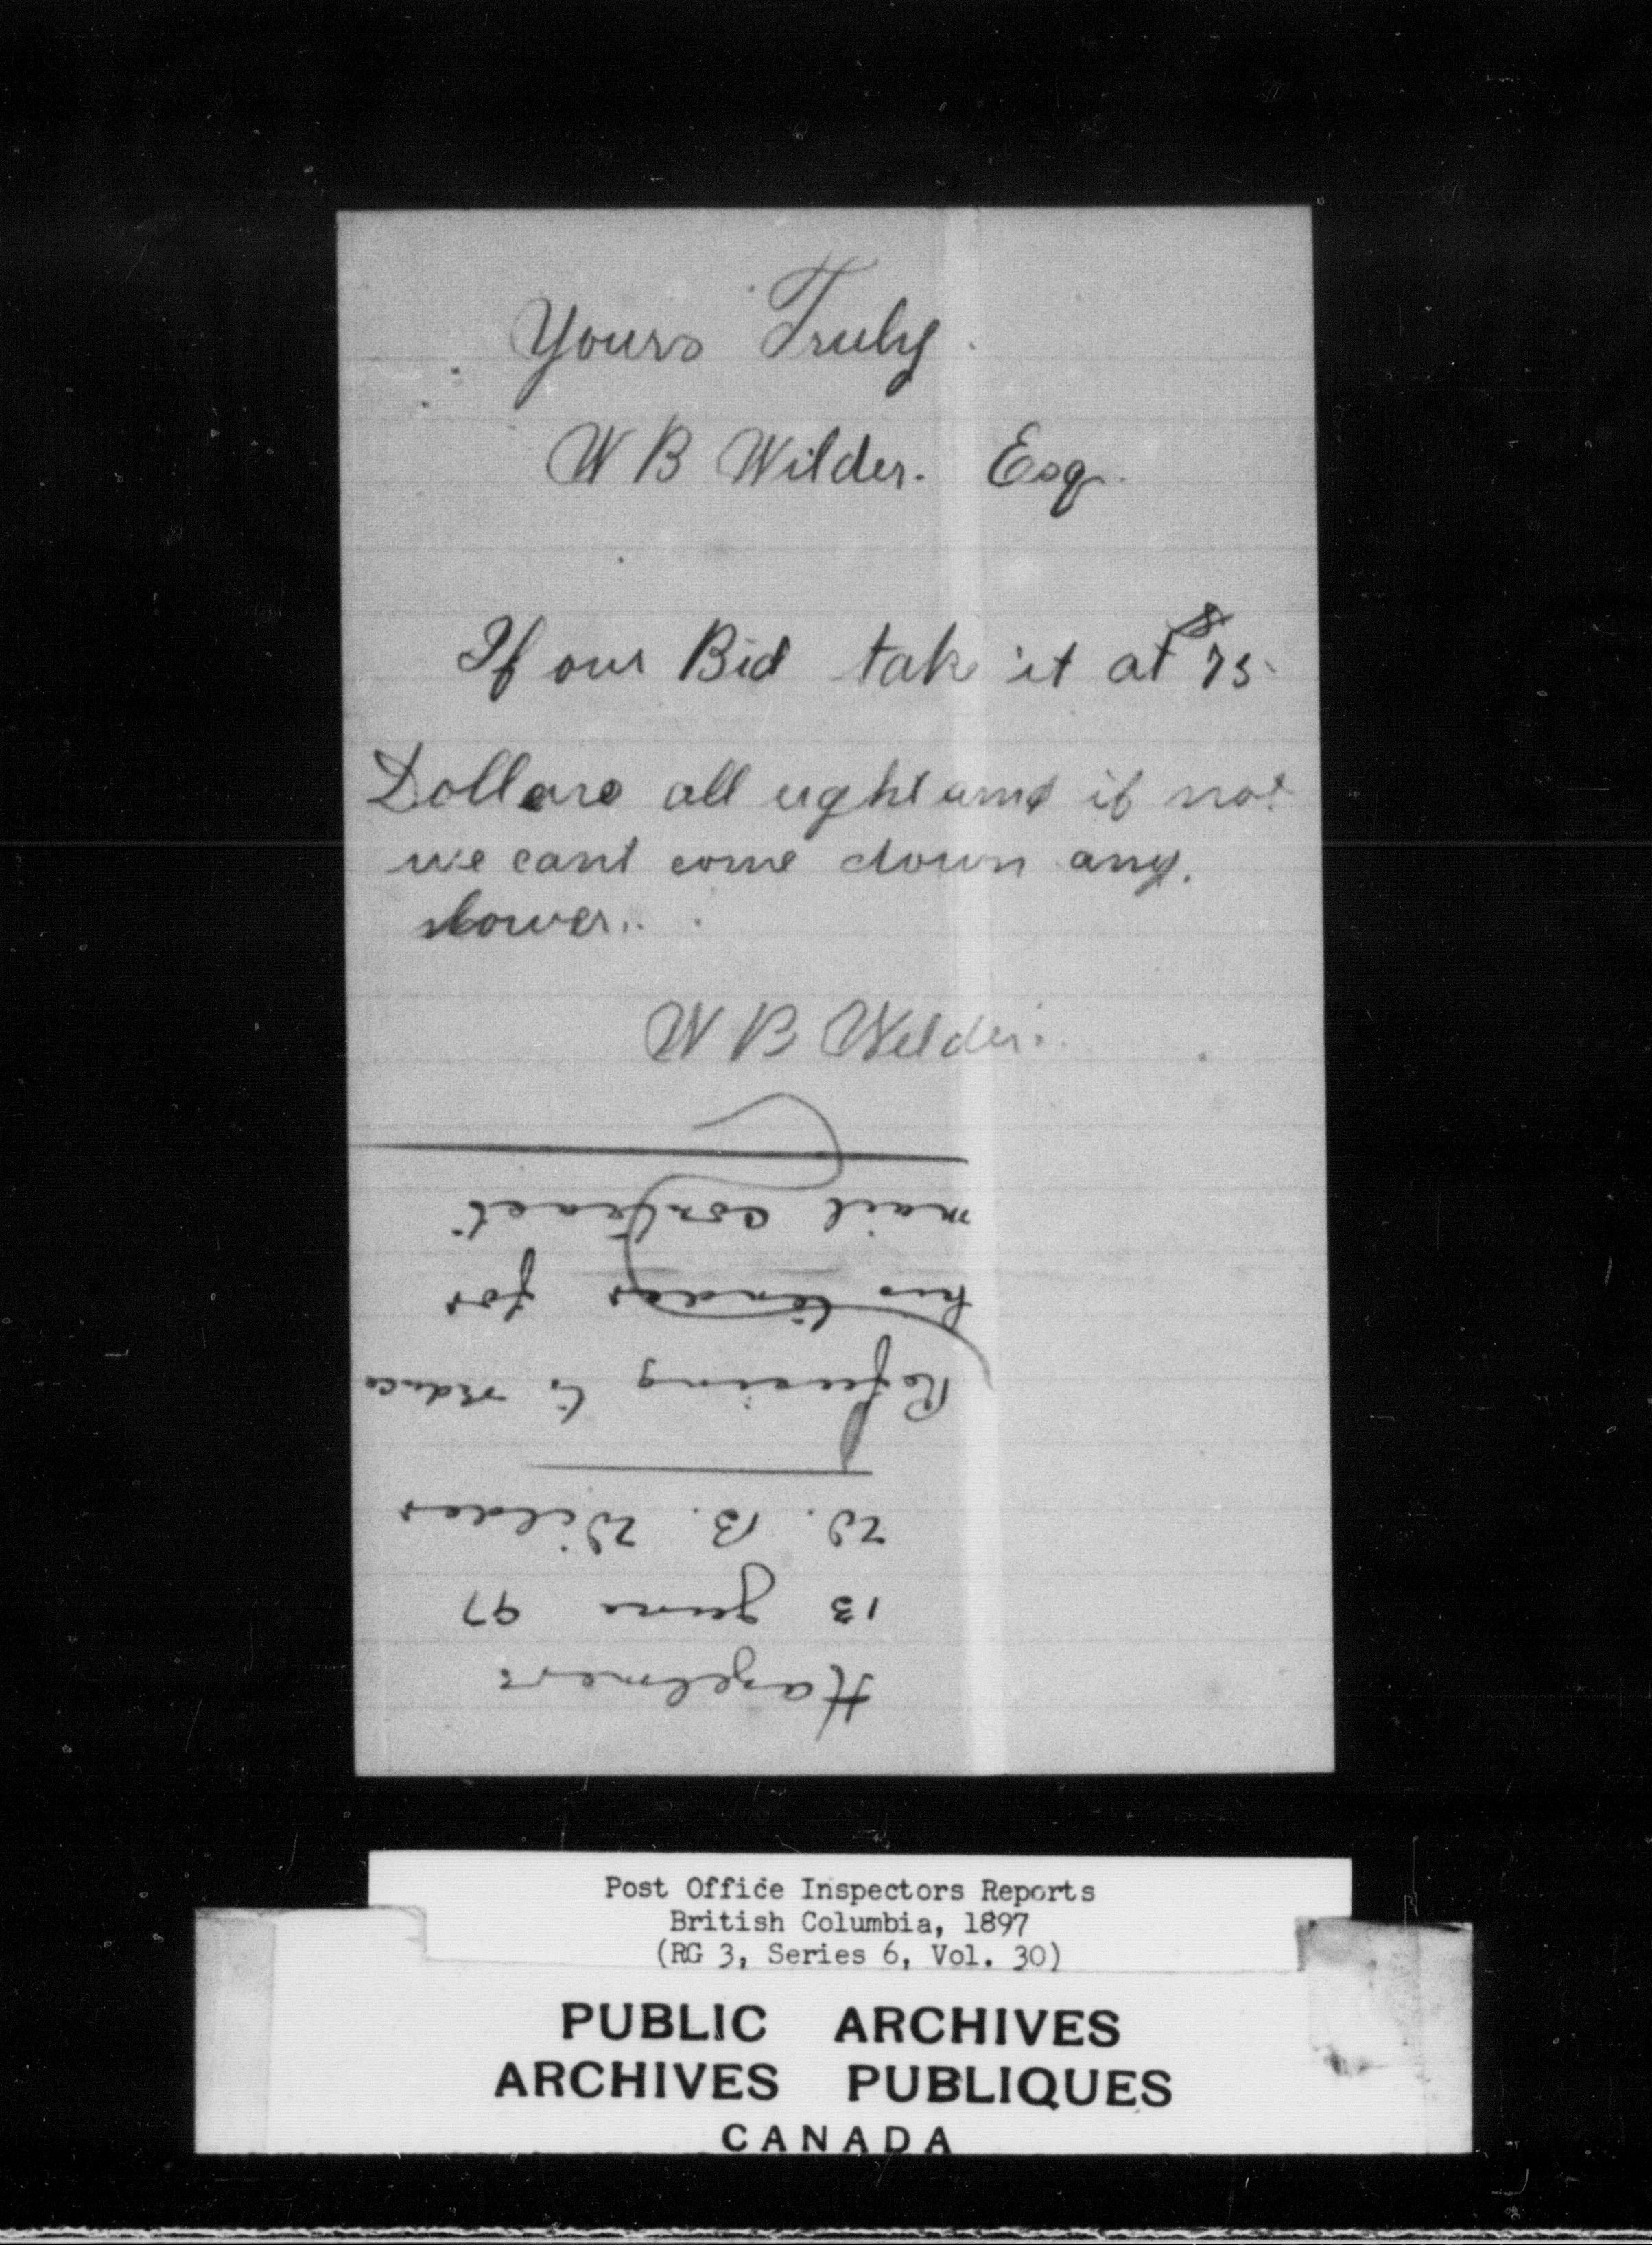 Yours Truly
W B Wilder. Esq.
If our Bid take it at $75
Dollars all right and if not
we cant come down any.
lower.
W B Wilder.
Hazelmere
13 June 97
W. B. Wilder
Refusing to reduce
his tender for
mail contract
Post Office Inspectors Reports
British Columbia, 1897
(RG 3, Series 6, Vol. 30)
PUBLIC ARCHIVES
ARCHIVES PUBLIQUES
CANADA